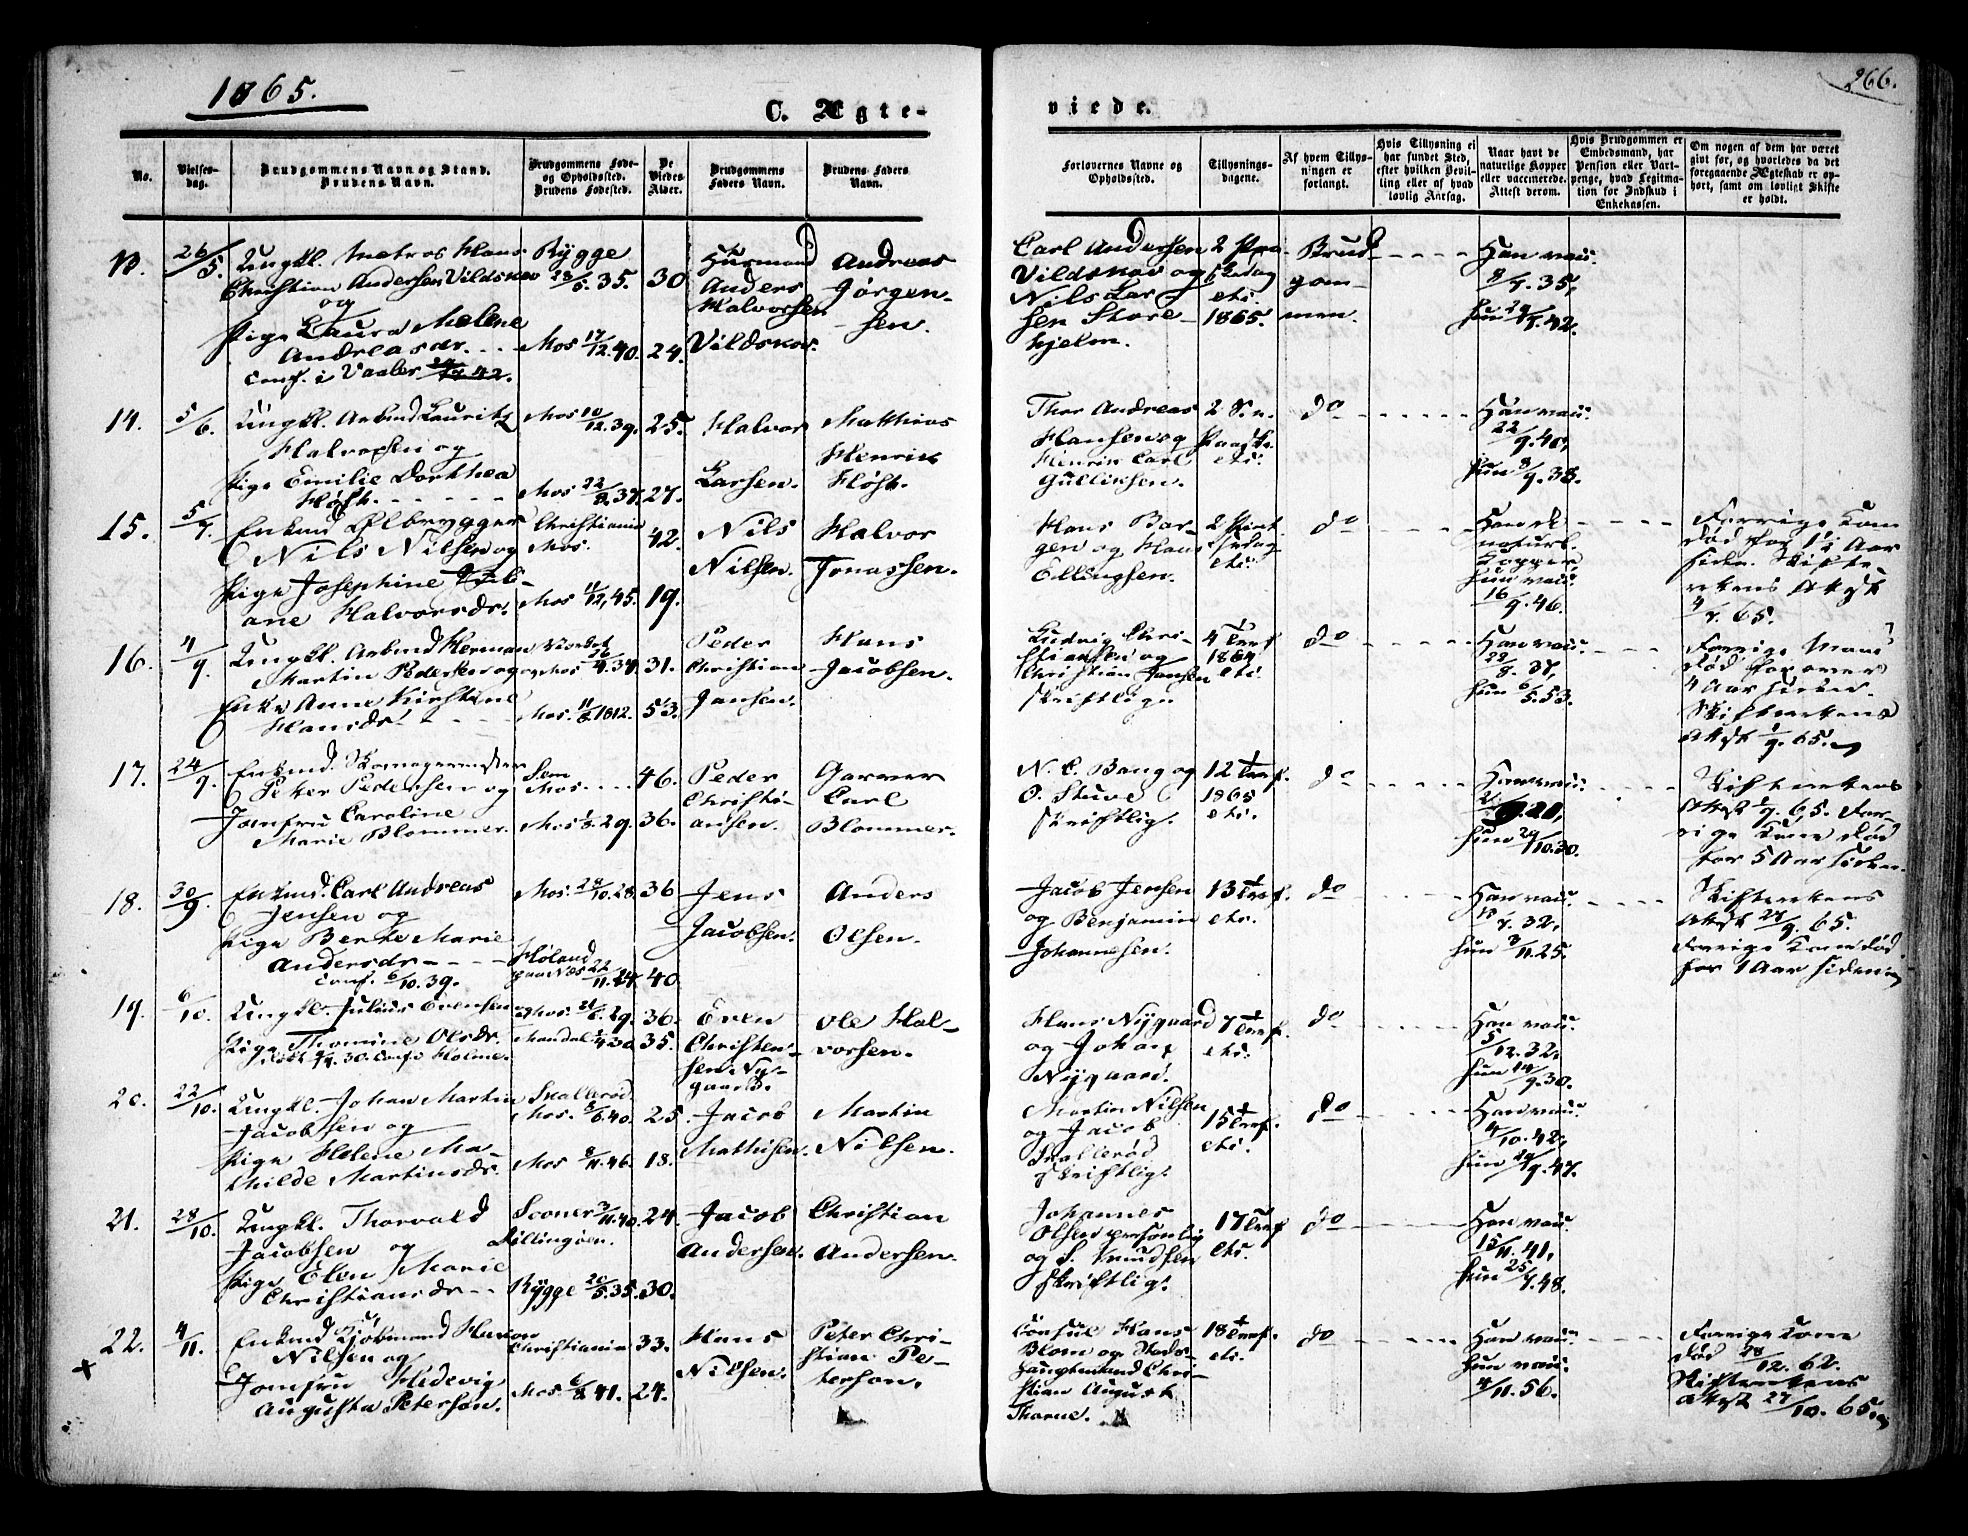 1865.
266.
C. Ægte-
viede.
No.
Vielses-
dag.
Brudgommens Navn og Stand.
Brudens Navn.
Brudgommens Føde-
og Opholdssted.
Brudens Fødested.
De
Viedes
Alder.
Brudgommens
Faders Navn.
Brudens Faders
Navn.
Forlovernes Navne og
Opholdssted.
Tillysnings-
dagene.
Af hvem Tillys-
ningen er
forlangt.
Hvis Tillysning ei
har fundet Sted,
efter hvilken Bevil-
ling eller af hvad
lovlig Aarsag.
Naar havt de
naturlige Kopper
eller vaccinerede.
Attest derom.
Hvis Brudgommen er
Embedsmand, har
Pension eller Vart-
penge, hvad Legitima-
tion for Indskud i
Enkekassen.
Om nogen af dem har været
gift før, og hvorledes da det
foregaaende Ægteskab er op-
hørt, samt om lovligt Skifte
er holdt.
13.
26/5
Ungkl. Matros Hans
Christian Andersen Vildskov
og
Pige Laura Melene
Andreasdr.
conf. i Vaaler
Rygge
28/5. 35.
Mos 17/12. 40.
30
24.
Huusmand
Anders
Halvorsen
Vildskov.
Andreas
Jørgen-
sen.
Carl Andersen
Vildskov og
Nils Lar-
sen Store-
hjelm.
1865.
Brud-
gom-
men.
Han vacc.
8/7. 35,
hun
14.
5/6.
Ungkl. Arbmd Lauritz
Halvorsen og
Pige Emilie Dorthea
Høst.
Mos 10/12. 39.
Mos 22/9. 37.
25.
27.
Halvor
Larsen.
Matthias
Henrik
Høst.
Thor Andreas
Hansen og
Henrik Carl
Gulliksen.
2 S. e.
do
Han vacc.
22/9. 40,
hun 8/9. 38.
15.
5/7.
Enkmd Ølbrygger
Nils Nilsen og
Pige Josephine
ane Halvorsdr.
Christiania
Mos.
Mos 11/12. 45.
42.
19.
Nils
Nilsen.
Halvor
Jonassen.
Hans Bør-
gen og Hans
Ellingsen.
do
naturl.
Kopper
hun vacc.
16/9. 46.
Forrige Kone
død for 1½ Aar
siden. Skifte-
rettens Attest
4/7. 65.
16.
4/9.
Ungkl. Arbmd Herman
Martin Pedersen og
Enke Anne Kirstine
Hansdr.
Mos. 11/8. 1812.
31.
53.
Peder
Christian
Jansen.
Hans
Jacobsen.
Ludvig Chri-
stiansen og
Christian Jansen
skriftlig.
1864
do
Han vacc.
hun 6/5. 53.
Forrige Mand
død for over
4 Aar siden.
Skifterettens
Attest 1/9. 65.
17.
24/9.
Enkmd. Skomagermester
Peter Pedersen og
Jomfru Caroline
Marie Blommer.
Sem
Mos.
46.
36.
Peder
Christi-
ansen.
Garver
Carl
Blommer.
N. C. Bang og
O. Stuve
skriftlig.
12 Tref.
1865
do
Han vacc.
hun 29/10. 30.
Skifterettens
Attest 1/9. 65. For-
rige Kone død
for 5 Aar siden.
18.
30/9.
Enkmd. Carl Andreas
Jensen og
Pige Berte Marie
Andersdr.
conf. 6/10. 39.
Mos. 28/10. 28.
Høland
22/11. 24.
36
40.
Jens
Jacobsen.
Anders
Olsen.
Jacob Jensen
og Benjamin
Johannesen.
13 Tref.
do
Han vacc.
hun 3/11. 25.
Skifterettens
Attest 28/9. 65.
Forrige Kone død
for 1 Aar siden
19.
6/10.
Ungkl. Julius Evensen og
Pige Thomine Olsdr.
Mandal
36.
35.
Even
Christen-
sen Ny-
gaard.
Ole Hal-
vorsen.
Hans Nygaard
og Johan
Nygaard.
7 Tref.
do
Han vacc.
5/12. 32,
hun 14/9. 30.
20.
22/10.
Ungkl. Johan Martin
Jacobsen og
Pige Helene Ma-
thilde Martinsdr.
Skallerød
Mos. 8/6. 40.
Mos 8/11. 46.
25.
18.
Jacob
Mathisen.
Martin
Nilsen.
Martin Nilsen
og Jacob
Skallerød
skriftlig.
15 Tref.
do
Han vacc.
4/10. 42,
hun 29/9. 47.
21.
28/10.
Ungkl. Thorvald
Jacobsen og
Pige Elen Marie
Christiansdr.
Dillingøen.
Rygge 20/5. 35.
24.
30.
Jacob
Andersen.
Christian
Andersen.
Johannes
Olsen personlig
og S. Knudsen
skriftlig.
17 Tref
do
Han vacc.
15/11. 41,
hun 25/7. 48.
22.
4/11.
Enkmd Kjøbmand
Nilsen og
Jomfru Hedevig
Augusta Peterson.
Christiania
Mos. 6/8. 41.
33.
24.
Hans
Nilsen.
Peter Chri-
stian Pe-
terson.
Consul Hans
Blom og Stads-
hauptmand Chri-
stian August
Thorne.
18 Tref.
do
Han vacc.
hun vacc.
4/11. 56.
Forrige Kone
død 28/12. 62.
Skifterettens
Attest 27/10. 65.